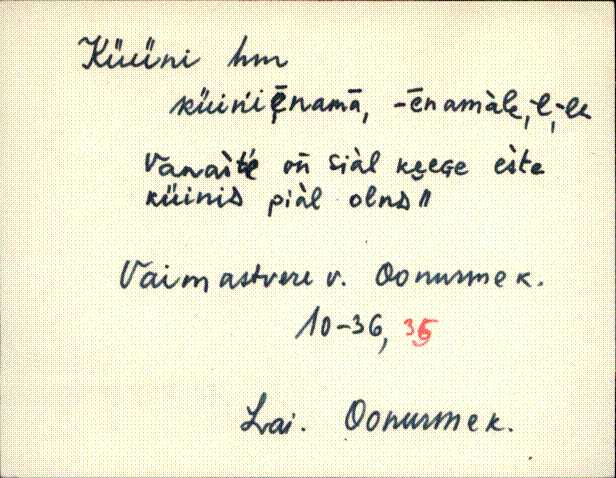 Küüni hm
küini̬ēnamā, -ēnamàle, -l, -le
Vanaštè on̄ siàl kęege ešte
küinis piàl olnd"
Vaimastvere v. Oonurme k.
10-36, 35
Lai. Oonurme k.